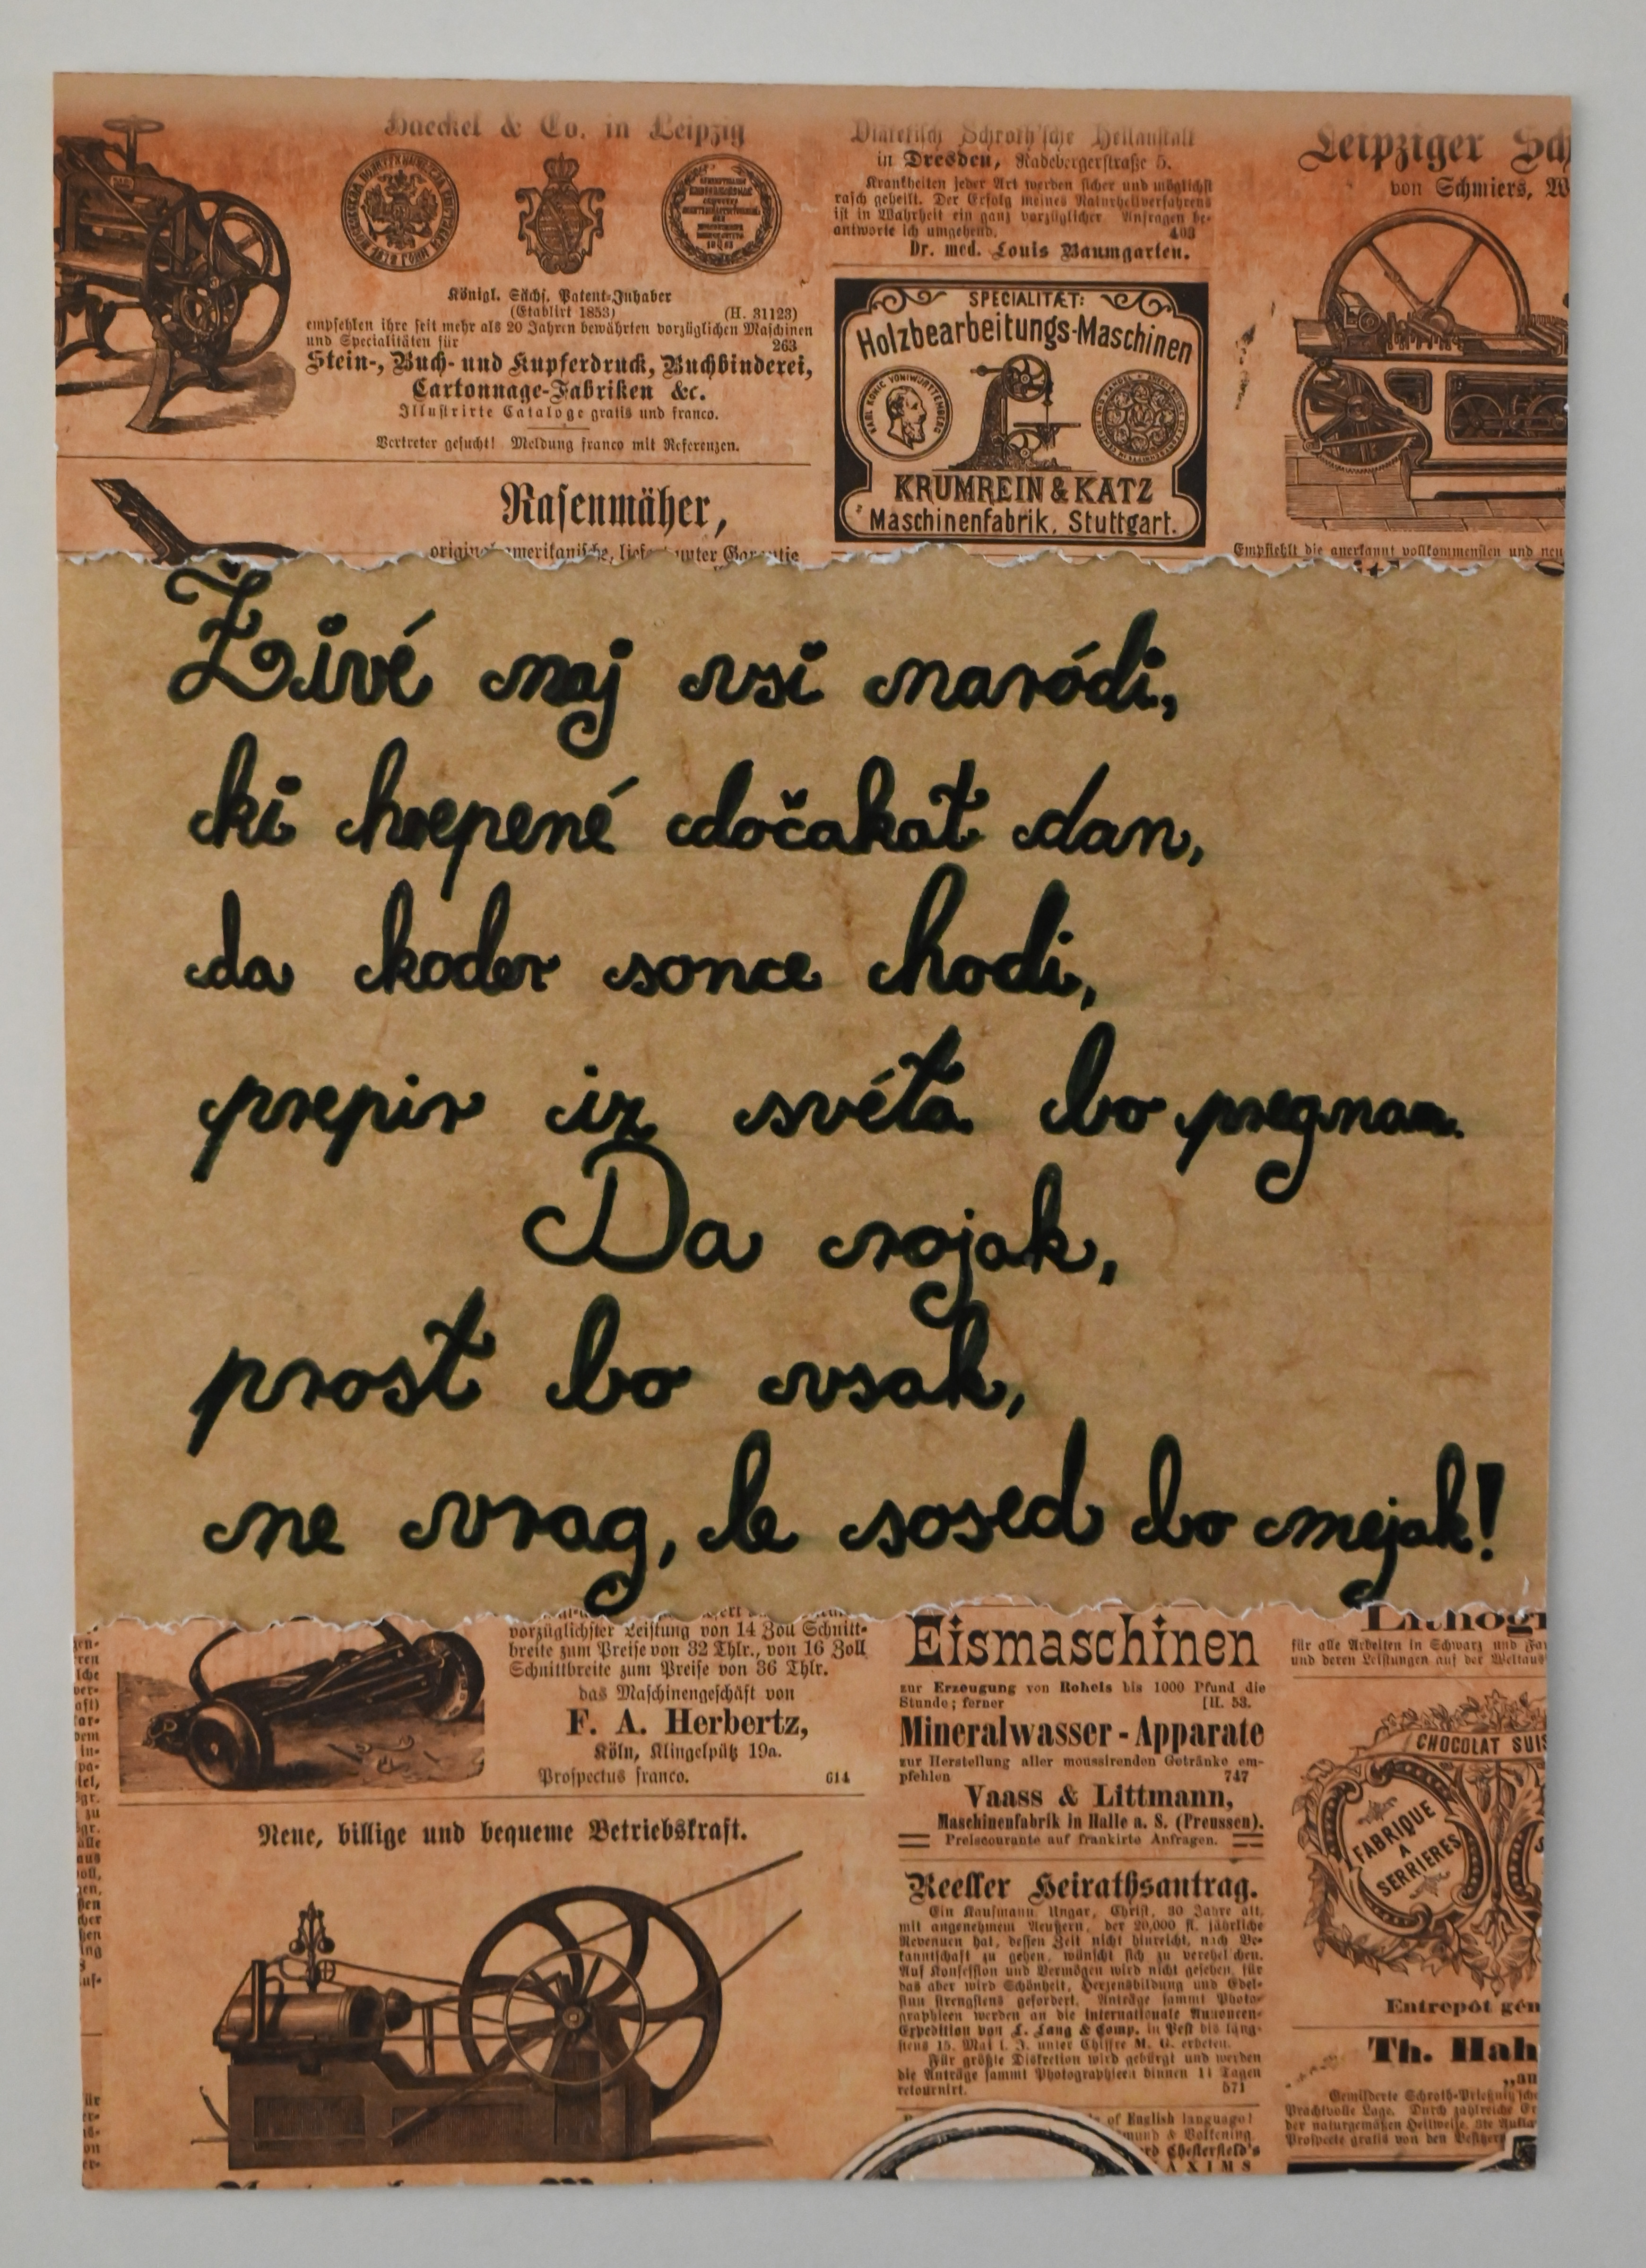 Haeckel & Co. in Leipzig
Königl. Sächs. Patent-Inhaber
(Etablirt 1853) (H. 31123)
empfehlen ihre seit mehr als 20 Jahren bewährten vorzüglichen Maschinen
und Specialitäten für 263
Stein-, Buch- und Kupferdruck, Buchbinderei,
Cartonnage-Fabriken &c.
Illustrirte Cataloge gratis und franco.
Vertreter gesucht! Meldung franco mit Referenzen.
Rasenmäher,
Diätetisch Schroth'sche Heilanstalt
in Dresden, Radebergerstraße 5.
Krankheiten jeder Art werden sicher und möglichst
rasch geheilt. Der Erfolg meines Naturheilverfahrens
ist in Wahrheit ein ganz vorzüglicher. Anfragen be-
antworte ich umgehend. 403
Dr. med. Louis Baumgarten.
SPECIALITÆT:
Holzbearbeitungs-Maschinen
KRUMREIN & KATZ
Maschinenfabrik, Stuttgart.
Leipziger Sch
von Schmiers, W
Empfiehlt die anerkannt vollkommensten und neu
Živé naj vsi naródi,
ki hrepené dočakat dan,
da koder sonce hodi,
prepir iz svéta bo pregnan.
Da rojak,
prost bo vsak,
ne vrag, le sosed bo mejak!
vorzüglichster Leistung von 14 Zoll Schnitt-
breite zum Preise von 32 Thlr., von 16 Zoll
Schnittbreite zum Preise von 36 Thlr.
das Maschinengeschäft von
F. A. Herbertz,
Köln, Klingelpütz 19a.
Prospectus franco. 614
Neue, billige und bequeme Betriebskraft.
Eismaschinen
zur Erzeugung von Roheis bis 1000 Pfund die
Stunde; ferner [H. 53.
Mineralwasser-Apparate
zur Herstellung aller moussirenden Getränke em-
pfehlen 747
Vaass & Littmann,
Maschinenfabrik in Halle a. S. (Preussen).
Preiscourante auf frankirte Anfragen.
Reeller Heirathsantrag.
Ein Kaufmann, Ungar, Christ, 30 Jahre alt,
mit angenehmem Aeußern, der 20,000 fl. jährliche
Revenuen hat, dessen Zeit nicht hinreicht, nach Be-
kanntschaft zu gehen, wünscht sich zu verehelichen.
Auf Konfession und Vermögen wird nicht gesehen, für
das aber wird Schönheit, Herzensbildung und Edel-
sinn strengstens gefordert. Anträge sammt Photo-
graphieen werden an die Internationale Annoncen-
Expedition von L. Lang & Comp. in Pest bis läng-
stens 15. Mai l. J. unter Chiffre M. G. erbeten.
Für größte Diskretion wird gebürgt und werden
die Anträge sammt Photographieen binnen 14 Tagen
retournirt. 571
of English language!
Chesterfield's
Lithogr
für alle Arbeiten in Schwarz und Fa
und deren Leistungen auf der Weltaus
CHOCOLAT SUIS
FABRIQUE
A
SERRIERES
Entrepôt gén
Th. Hah
Prachtvolle Lage. Durch zahlreiche Er
der naturgemäßen Heilweise.
Prospecte gratis von den Besitzer